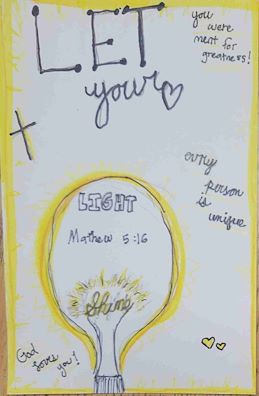 LET
your
you
were
ment for
greatness!
evry
person
is
unique
LIGHT
Mathew 5:16
Shine
God
loves
you!